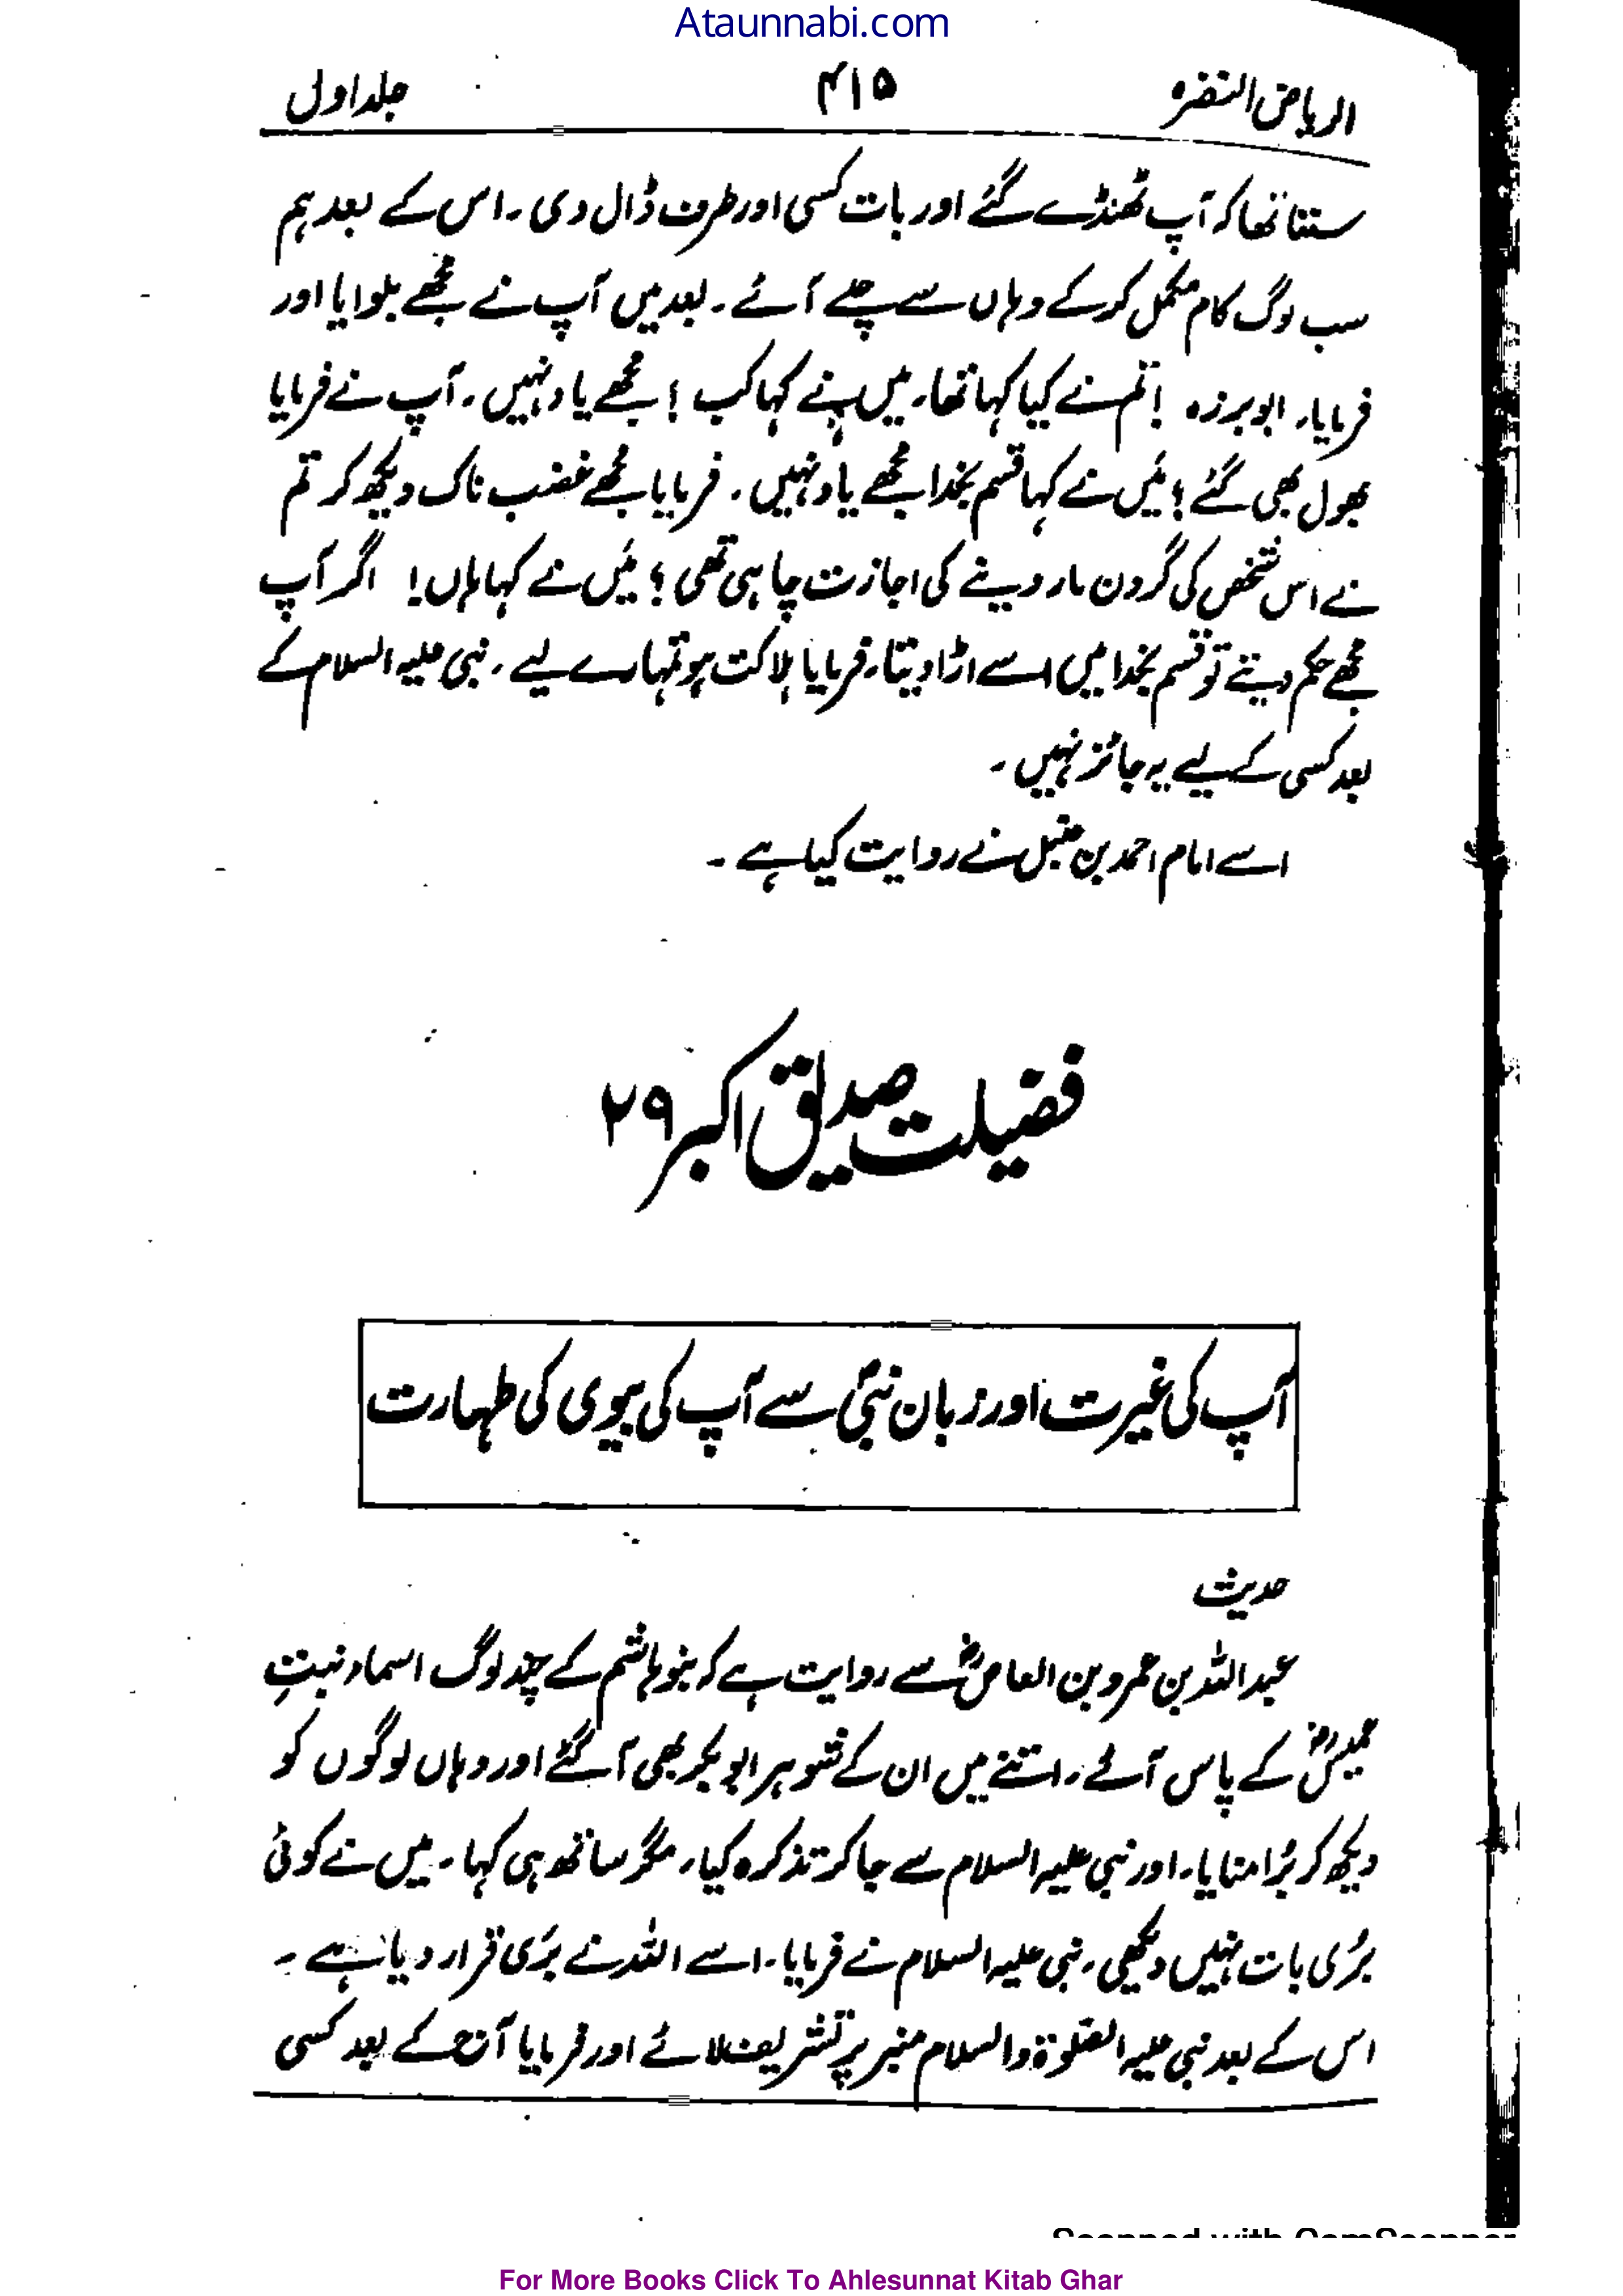 Ataunnabi.com
الریاض النضرہ ۴۱۵ جلد اول
سننا تھا کہ آپ ٹھنڈے گئے اور بات کسی اور طرف ڈال دی ۔ اس کے بعد ہم
سب لوگ کام مکمل کر کے وہاں سے چلے آئے ۔ بعد میں آپ نے مجھے بلوایا اور
فرمایا۔ ابو برزہ ! تم نے کیا کہا تھا۔ میں نے کہا کب ؟ مجھے یاد نہیں ۔ آپ نے فرمایا
بھول بھی گئے ؟ میں نے کہا قسم بخدا مجھے یاد نہیں ۔ فرمایا مجھے غضب ناک دیکھ کر تم
نے اس شخص کی گردن مار دینے کی اجازت چاہی تھی ؟ میں نے کہا ہاں! اگر آپ
مجھے حکم دیتے تو قسم بخدا میں اسے اڑا دیتا۔ فرمایا ہلاکت ہو تمہارے لیے ۔ نبی علیہ السلام کے
بعد کسی کے لیے یہ جائز نہیں ۔
اسے امام احمد بن حنبل نے روایت کیا ہے ۔
فضیلت صدیق اکبر ۲۹
آپ کی غیرت اور زبان نبیؐ سے آپ کی بیوی کی طہارت
حدیث
عبداللہ بن عمرو بن العاصؓ سے روایت ہے کہ بنو ہاشم کے چند لوگ اسماء بنتِ
عمیسؓ کے پاس آئے۔ اتنے میں ان کے شوہر ابو بکر بھی آ گئے اور وہاں لوگوں کو
دیکھ کر بُرا منایا۔ اور نبی علیہ السلام سے جا کر تذکرہ کیا۔ مگر ساتھ ہی کہا ۔ میں نے کوئی
بُری بات نہیں دیکھی۔ نبی علیہ السلام نے فرمایا۔ اسے اللہ نے بَری قرار دیا ہے ۔
اس کے بعد نبی علیہ الصلوٰۃ والسلام منبر پر تشریف لائے اور فرمایا آج کے بعد کسی
Scanned with CamScanner
For More Books Click To Ahlesunnat Kitab Ghar